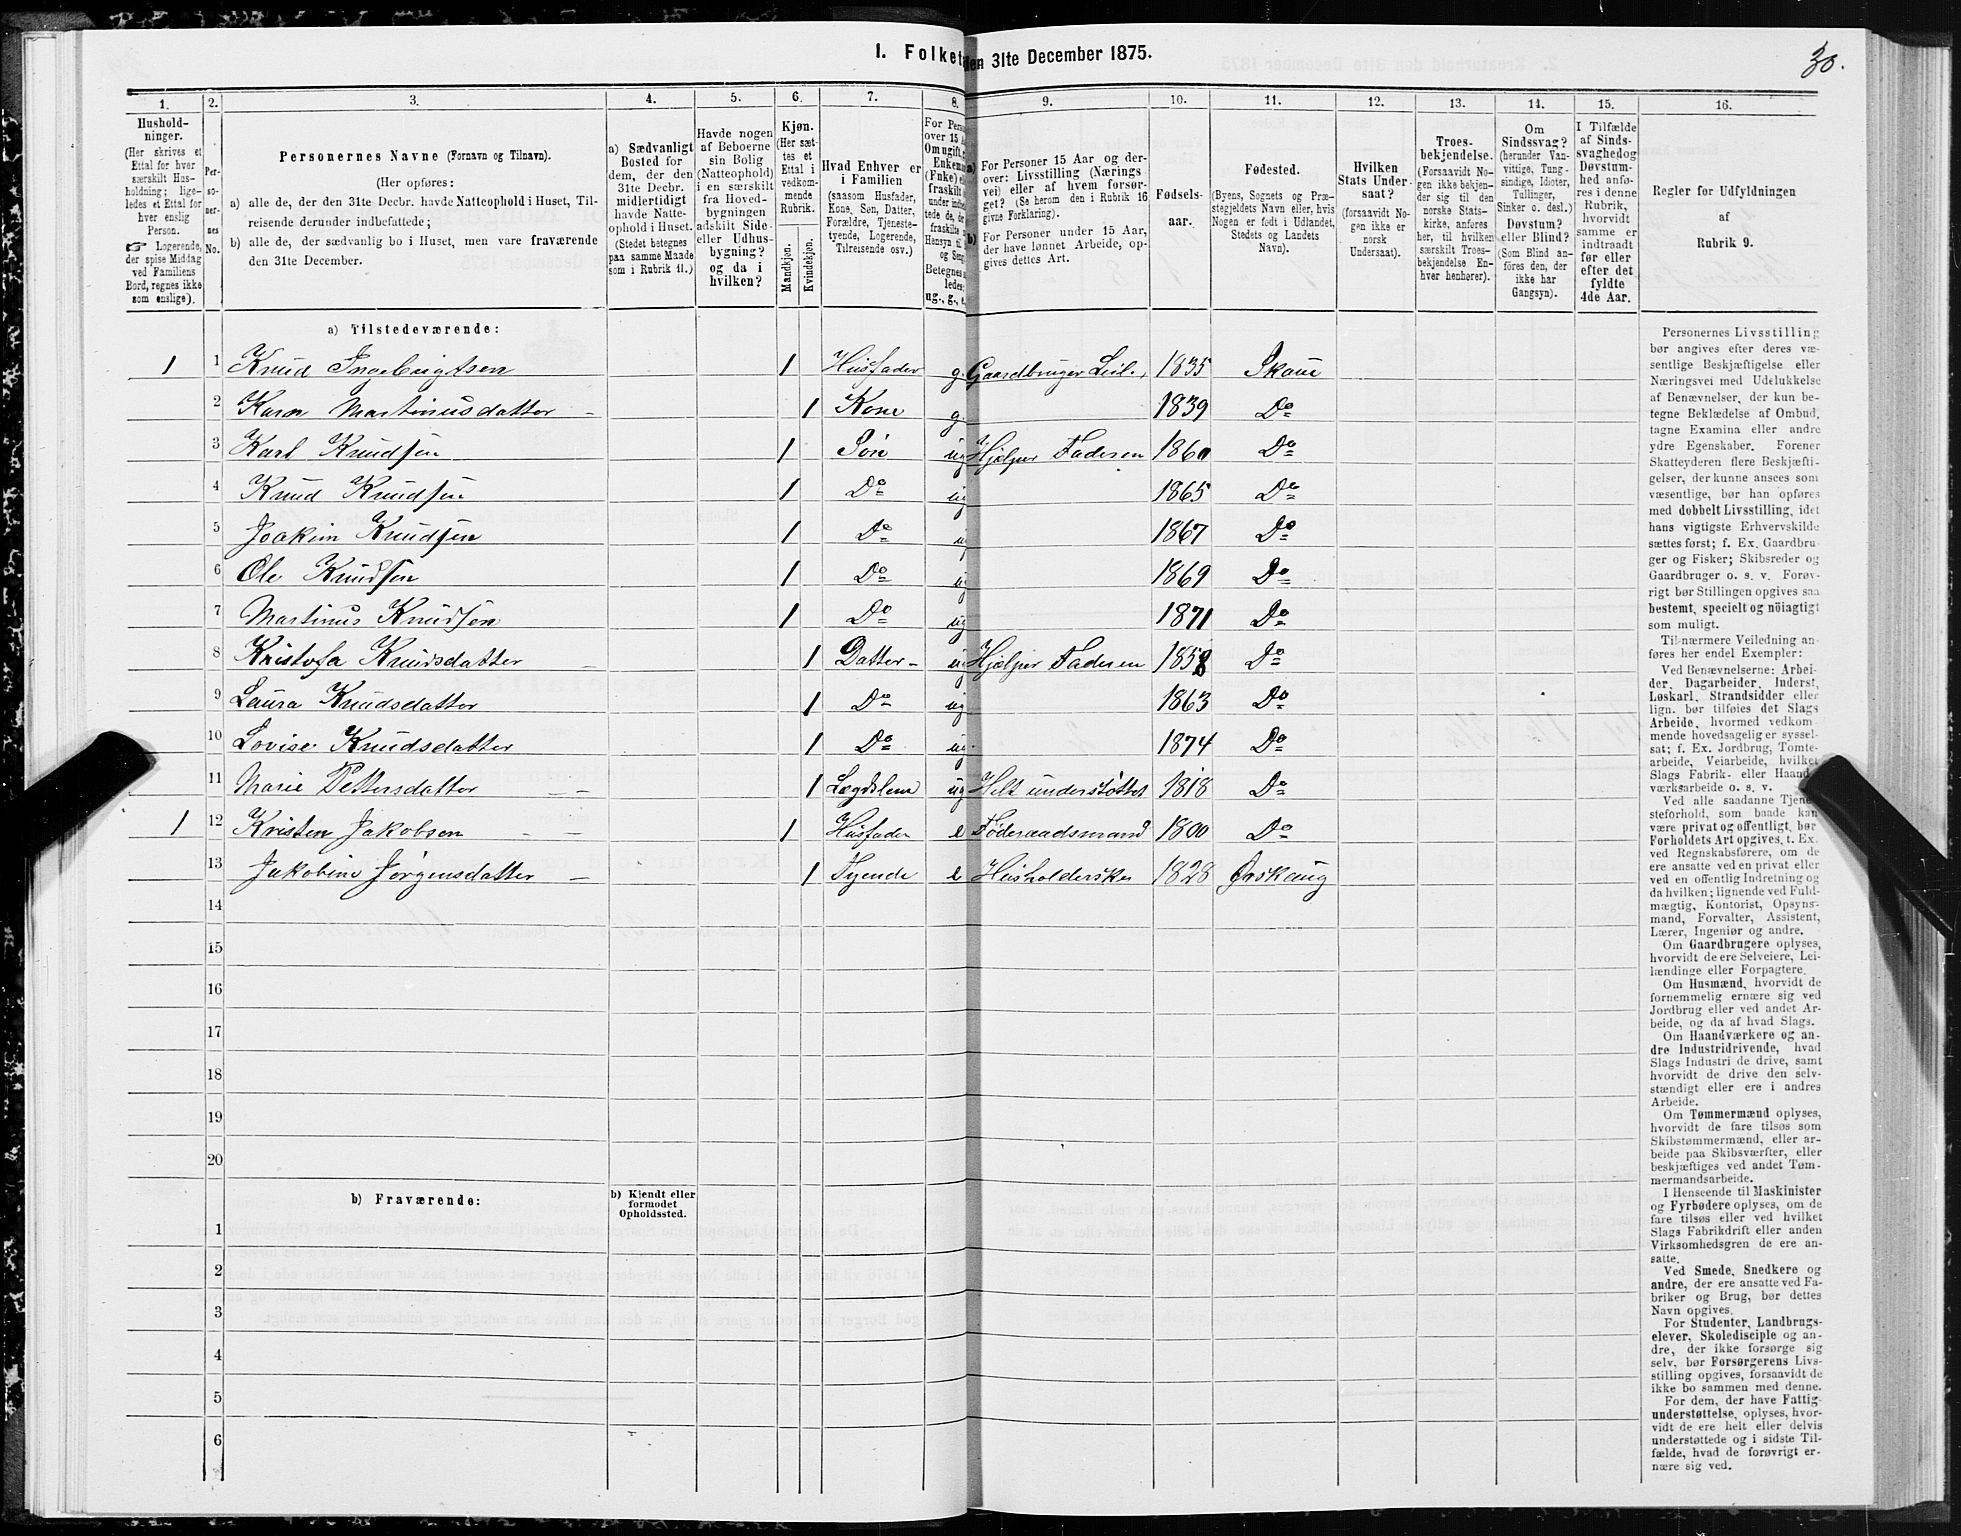 30.
I. Folketæ
den 31te December 1875.
1. 2. 3. 4. 5. 6. 7. 8. 9. 10. 11. 12. 13. 14. 15. 16.
Hushold-
ninger.
(Her skrives et
Ettal for hver
særskilt Hus-
holdning; lige-
ledes et Ettal for
hver enslig
Person.
☞ Logerende,
der spise Middag
ved Familiens
Bord, regnes ikke
som enslige).
Per-
so-
ner-
nes
No.
Personernes Navne (Fornavn og Tilnavn).
(Her opføres:
a) alle de, der den 31te Decbr. havde Natteophold i Huset, Til-
reisende derunder indbefattede;
b) alle de, der sædvanlig bo i Huset, men vare fraværende
den 31te December.
a) Sædvanligt
Bosted for
dem, der den
31te Decbr.
midlertidigt
havde Natte-
ophold i Huset.
(Stedet betegnes
paa samme Maade
som i Rubrik 11.)
Havde nogen
af Beboerne
sin Bolig
(Natteophold)
i en særskilt
fra Hoved-
bygningen
adskilt Side-
eller Udhus-
bygning?
og da i
hvilken?
Kjøn.
(Her sæt-
tes et
Ettal i
vedkom-
mende
Rubrik.
Mandkjøn.
Kvindekjøn.
Hvad Enhver er
i Familien
(saasom Husfader,
Kone, Søn, Datter,
Forældre, Tjeneste-
tyende, Logerende,
Tilreisende osv.)
For Perso
over 15 A
Om ugift, g
Enkema
(Fnke) el
fraskilt
under indret
tede de, de
fraskilte
Hensyn til
og Seng
Betegnes
ledes:
ug., g., e.
a) For Personer 15 Aar og der-
over: Livsstilling (Nærings
vei) eller af hvem forsør-
get? (Se herom den i Rubrik 16
givne Forklaring).
b) For Personer under 15 Aar,
der have lønnet Arbeide, op-
gives dettes Art.
Fødsels-
aar.
Fødested.
(Byens, Sognets og Præ-
stegjeldets Navn eller, hvis
Nogen er født i Udlandet,
Stedets og Landets
Navn).
Hvilken
Stats Under-
saat?
(forsaavidt No-
gen ikke er
norsk
Undersaat).
Troes-
bekjendelse.
(Forsaavidt No-
gen ikke bekjen-
der sig til den
norske Stats-
kirke, anføres
her, til hvilken
særskilt Troes-
bekjendelse En-
hver henhører).
Om
Sindssvag?
(herunder Van-
vittige, Tung-
sindige, Idioter,
Tullinger,
Sinker o. desl.)
Døvstum?
eller Blind?
(Som Blind an-
føres den, der
ikke har
Gangsyn).
I Tilfælde
af Sinds-
svaghed og
Døvstum-
hed anfø-
res i denne
Rubrik,
hvorvidt
samme er
indtraadt
før eller
efter det
fyldte
4de Aar.
Regler for Udfyldningen
af
Rubrik 9.
a) Tilstedeværende:
1 1 Knud Ingebrigtsen 1 Husfader g. Gaardbruger Leil. 1835 Skaue
2 Karn Martinusdatter 1 Kone g. 1839 Do
3 Karl Knudsen 1 Søn ug Hjælper Faderen 1860 Do
4 Knud Knudsen 1 Do ug 1865 Do
5 Joakim Knudsen 1 Do ug 1867 Do
6 Ole Knudsen 1 Do ug 1869 Do
7 Martinus Knudsen 1 Do ug 1871 Do
8 Kristofa Knudsdatter 1 Datter ug Hjælper Faderen 1858 Do
9 Laura Knudsdatter 1 Do ug 1863 Do
10 Lovise Knudsdatter 1 Do ug. 1874 Do
11 Marie Pettersdatter 1 Lægdslem ug Helt understøttet 1818 Do
1 12 Kristen Jakobsen 1 Husfader e Føderaadsmand 1800 Do
13 Jakobine Jørgensdatter 1 Tyende e Husholderske 1828 Ørskoug
14
15
16
17
18
19
20
b) Fraværende:
b) Kjendt eller
formodet
Opholdssted.
1
2
3
4
5
6
Personernes Livsstilling
bør angives efter deres væ-
sentlige Beskjæftigelse eller
Næringsvei med Udelukkelse
af Benævnelser, der kun be-
tegne Beklædelse af Ombud,
tagne Examina eller andre
ydre Egenskaber. Forener
Skatteyderen flere Beskjæfti-
gelser, der kunne ansees som
væsentlige, bør han opføres
med dobbelt Livsstilling, idet
hans vigtigste Erhvervskilde
sættes først; f. Ex. Gaardbru-
ger og Fisker; Skibsreder og
Gaardbruger o. s. v. Forøv-
rigt bør Stillingen opgives saa
bestemt, specielt og nöiagtigt
som muligt.
Til nærmere Veiledning an-
føres her endel Exempler:
Ved Benævnelserne: Arbei-
der, Dagarbeider, Inderst,
Løskarl, Strandsidder eller
lign. bør tilføies det Slags
Arbeide, hvormed vedkom-
mende hovedsagelig er syssel-
sat; f. Ex. Jordbrug, Tomte-
arbeide, Veiarbeide, hvilket
Slags Fabrik- eller Haand-
værksarbeide o. s. v.
Ved alle saadanne Tjene-
steforhold, som baade kan
være privat og offentligt, bør
Forholdets Art opgives, t. Ex.
ved Regnskabsførere, om de
ere ansatte ved en privat eller
ved en offentlig Indretning og
da hvilken; lignende ved Fuld-
mægtig, Kontorist, Opsyns-
mand, Forvalter, Assistent,
Lærer, Ingeniør og andre.
Om Gaardbrugere oplyses,
hvorvidt de ere Selveiere, Lei-
lændinge eller Forpagtere.
Om Husmænd, hvorvidt de
fornemmelig ernære sig ved
Jordbrug eller ved andet Ar-
beide, og da af hvad Slags.
Om Haandværkere og an-
dre Industridrivende, hvad
Slags Industri de drive, samt
hvorvidt de drive den selv-
stændigt eller ere i andres
Arbeide.
Om Tømmermænd oplyses,
hvorvidt de fare tilsøs som
Skibstømmermænd, eller ar-
beide paa Skibsværfter, eller
beskjæftiges ved andet Tøm-
mermandsarbeide.
I Henseende til Maskinister
og Fyrbødere oplyses, om de
fare tilsøs eller ved hvilket
Slags Fabrikdrift eller anden
Virksomhedsgren de ere an-
satte.
Ved Smede, Snedkere og
andre, der ere ansatte ved Fa-
briker og Brug, bør dettes
Navn opgives.
For Studenter, Landbrugs-
elever, Skoledisciple og an-
dre, der ikke forsørge sig
selv, bør Forsørgerens Livs-
stilling opgives, forsaavidt de
ikke bo sammen med denne.
For dem, der have Fattig-
understøttelse, oplyses, hvor-
vidt de ere helt eller delvis
understøttede og i sidste Til-
fælde, hvad de forøvrigt er-
nære sig ved.